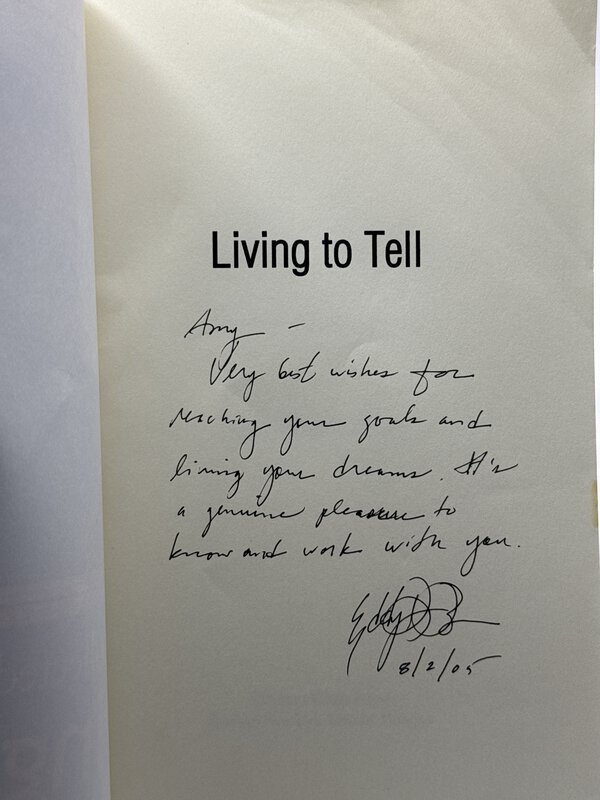 Living to Tell
Amy –
Very best wishes for
reaching your goals and
living your dreams. It's
a genuine pleasure to
know and work with you.
8/2/05